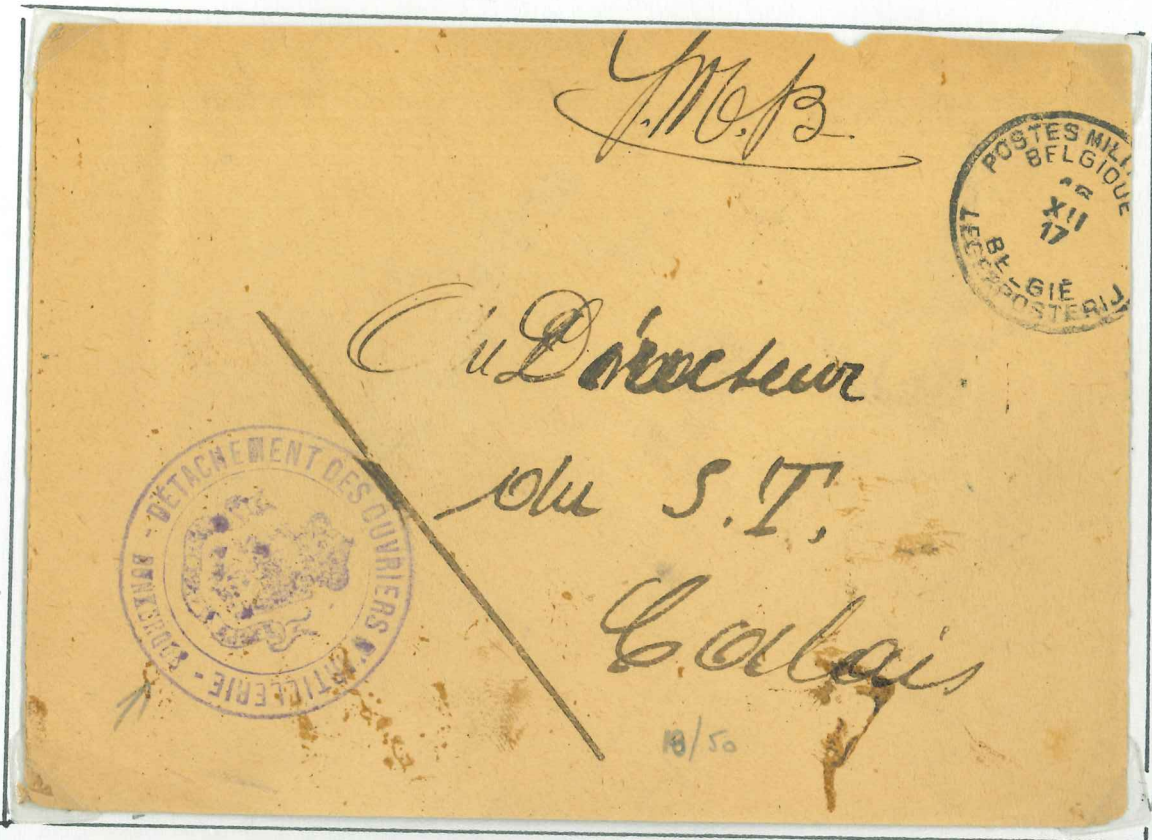 S.M.B.
POSTES MILIT
BELGIQUE
XII
17
BELGIË
LEGERPOSTERIJ
Au Directeur
du S.T.
Calais
DÉTACHEMENT DES OUVRIERS D'ARTILLERIE
/50